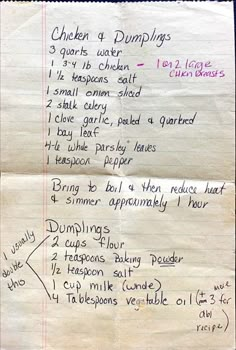 Chicken & Dumplings
3 quarts water
1 3-4 lb chicken - 1 or 2 large chicken breasts
1 1/2 teaspoons salt
1 small onion sliced
2 stalk celery
1 clove garlic, peeled & quartered
1 bay leaf
4-6 whole parsley leaves
1 teaspoon pepper
Bring to boil & then reduce heat
& simmer approximately 1 hour
Dumplings
2 cups flour
2 teaspoons baking powder
1/2 teaspoon salt
1 cup milk (whole)
4 Tablespoons vegetable oil (+ 3 more for dbl recipe)
I usually double tho